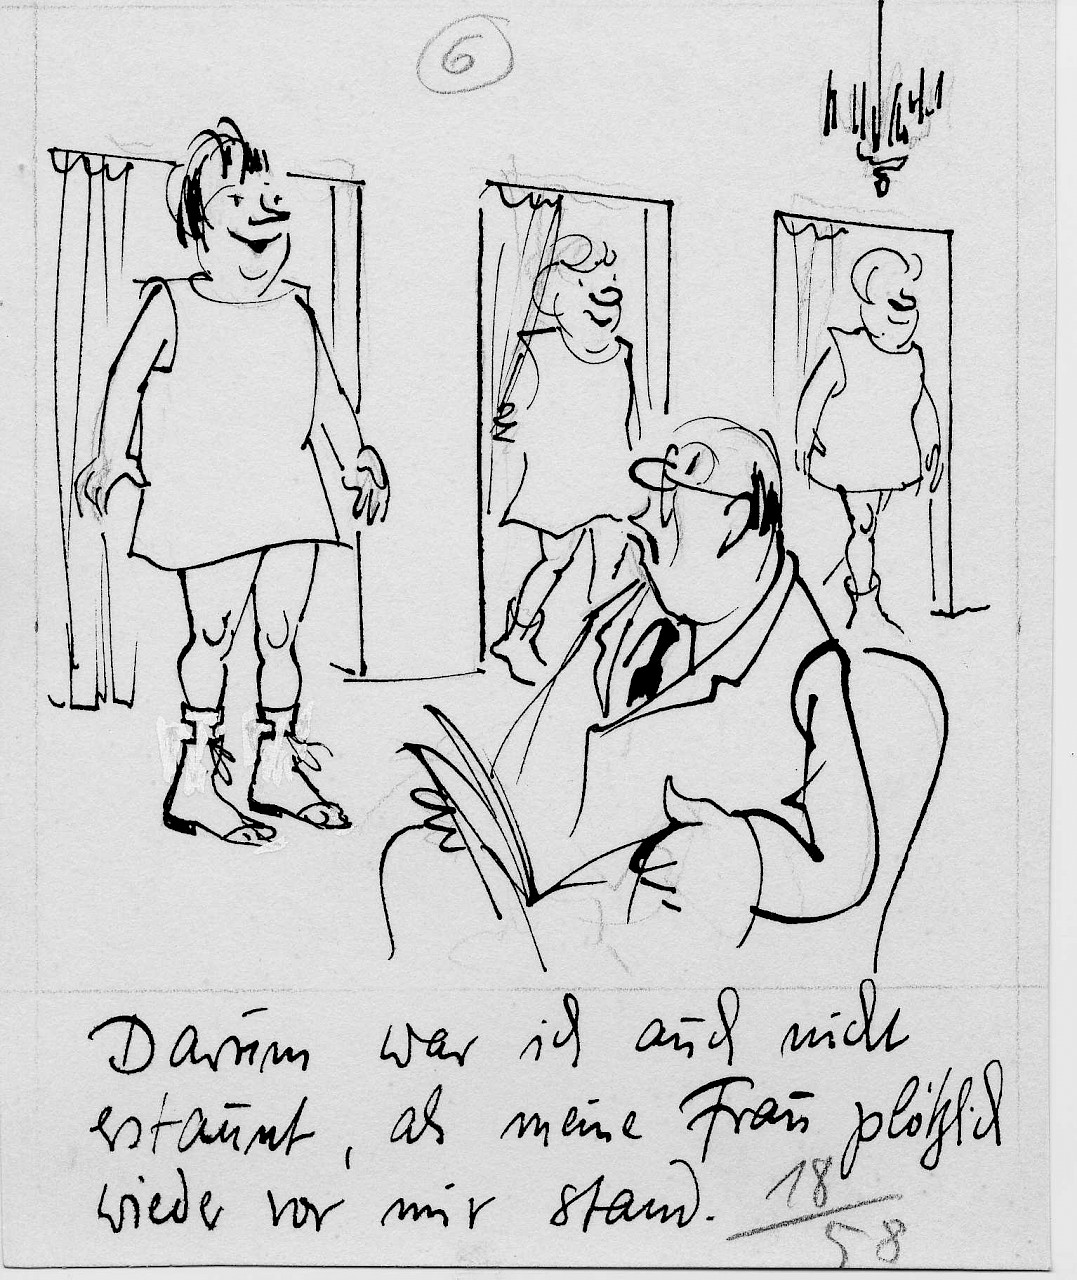 6
Darum war ich auch nicht
erstaunt, als meine Frau plötzlich
wieder vor mir stand.
18
58